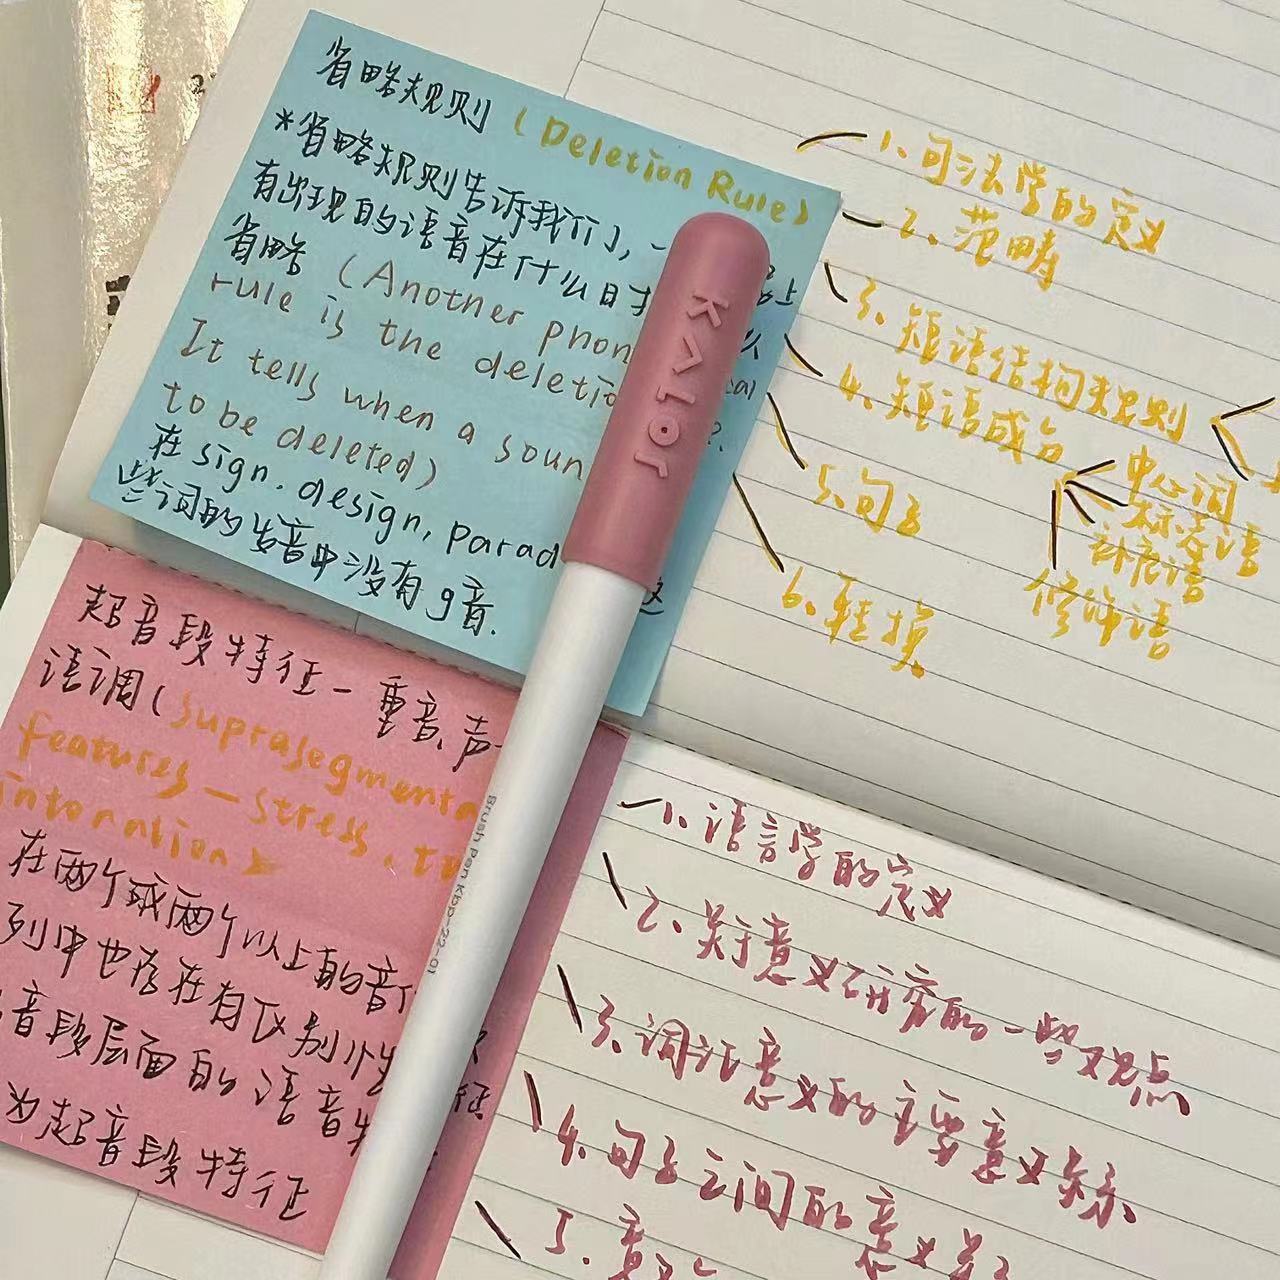 省略规则(Deletion Rule)
*省略规则告诉我们,一
有出现的语音在什么时
省略(Another phon
rule is the deletio
It tells when a soun
to be deleted)
在sign.design,parad
些词的发音中没有g音.
超音段特征—重音、声
语调(suprasegmenta
features—stress、to
intonation)
在两个或两个以上的音
列中也存在有区别性
音段层面的语音
为超音段特征
KAlor
Brush pen KBP-22-01
1、句法学的定义
2、范畴
3、短语结构规则
4、短语成分
中心词
标志语
补足语
修饰语
5、句子
6、转换
1、语言学的定义
2、关于意义研究的一些观点
3、词汇意义的主要意义关系
4、句子之间的意义关
5.意义